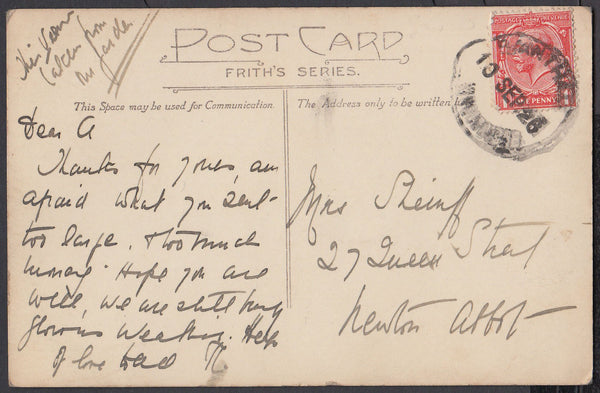 This View
taken from
our garden
POST CARD
FRITH'S SERIES.
This Space may be used for Communication.
The Address only to be written
POSTAGE REVENUE
ONE PENNY
10 SEP 26
Dear A
Thanks for yours, am
afraid what you sent
too large. & too much
money. Hope you are
well, we are still having
glorious weather. Heaps
of love to all
Mrs Sheriff
27 Queen Street
Newton Abbot